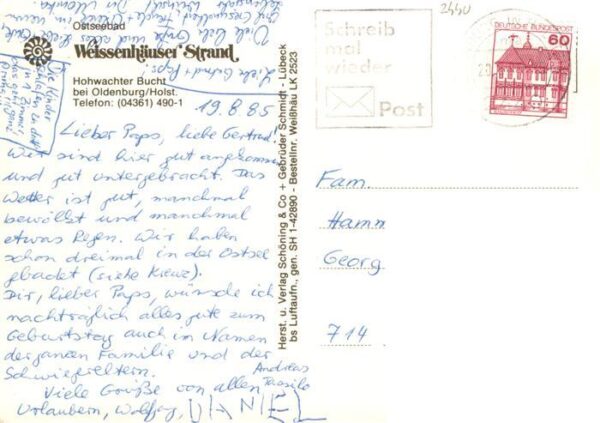 Ostseebad
Weissenhäuser Strand
Hohwachter Bucht
bei Oldenburg/Holst.
Telefon: (04361) 490-1
19.8.85
Lieber Paps, liebe Gertrud!
Wir sind hier gut angekommen
und gut untergebracht. Das
Wetter ist gut, manchmal
bewölkt und manchmal
etwas Regen. Wir haben
schon dreimal in der Ostsee
gebadet (siehe Kreuz).
Dir, lieber Paps, wünsche ich
nachträglich alles gute zum
Geburtstag auch im Namen
der ganzen Familie und der
Schwiegereltern.
Viele Grüße von allen
Urlaubern, Wolfgang,
Andreas
DANIEL
Die Kinder
schlafen in
Herst. u. Verlag Schöning & Co + Gebrüder Schmidt - Lübeck
bs Luftaufn., gen. SH 1-42890 - Bestellnr. Weißhäu LK 2523
Schreib
mal
wieder
Post
2440
DEUTSCHE BUNDESPOST
60
Fam.
Hamm
Georg
714